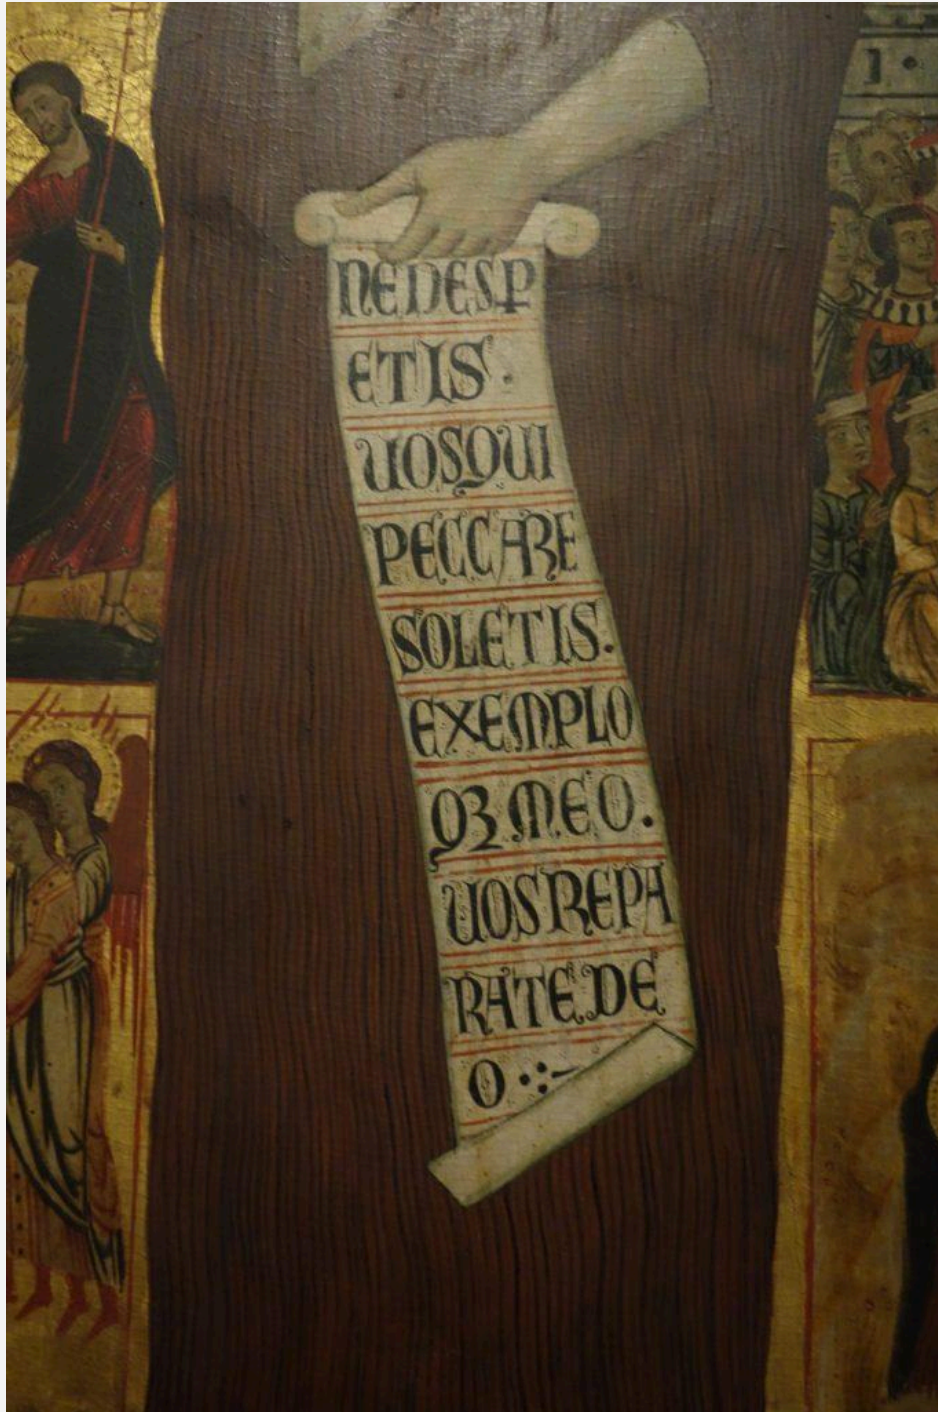 NEDESP
ETIS·
UOSQUI
PECCARE
SOLETIS.
EXEMPLO
QZ MEO.
UOS REPA
RATE DE
O